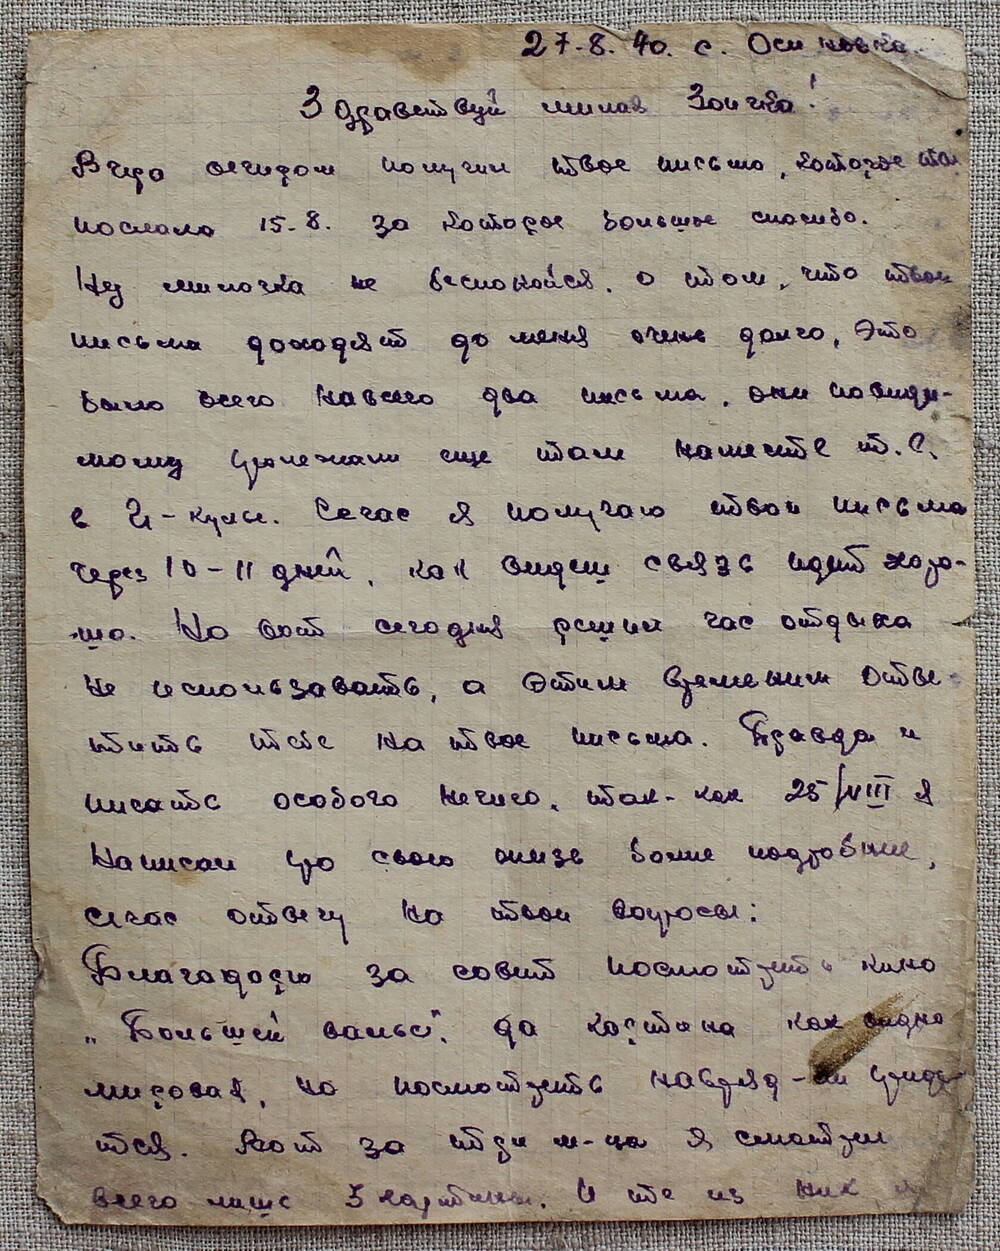 27-8.40. с. Осиновка.
Здравствуй милая Зоичка!
Вчера вечером получил твое письмо, которое ты
послала 15-8. за которое большое спасибо.
Ну милочка не беспокойся, о том, что твои
письма доходят до меня очень долго, Это
было всего навсего два письма, они повиди-
мому пролежали еще там на месте т.С.
в
Сечас я получаю твои письма
через 10-11 дней, как видеш связь идет хоро-
шо. Но вот сегодня решил час отдыха
не использавать, а Этим временим отве-
тить тебе на твое письма. Правда и
писать особого нечиго, так-как 25/VIII я
написал про свою жизь более подробние,
сечас отвечу на твои вопросы:
Благодорю за совет посмотреть кино
„Большей вальс", да картина как видно
мировая, но посмотреть навряд-ли приде-
тся. Вот за три м-ца я смотрел
всего лишь 3 картины. И те из них я